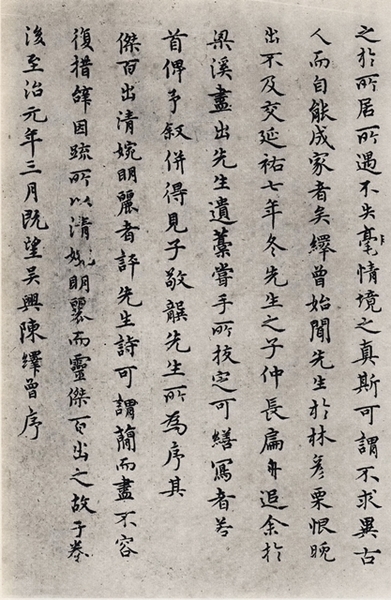 之於所居所遇不失毫情境之真斯可謂不求異古
人而自能成家者矣繹曾始聞先生於林彦栗恨晚
出不及交延祐七年冬先生之子仲長扁舟追余於
梁溪盡出先生遺藁嘗手所挍定可繕寫者若
首俾予叙併得見子敬龔先生所為序其
傑百出清婉明麗者評先生詩可謂蕳而盡不容
復措辝因疏所以清婉明麗而靈傑百出之故于卷
後至治元年三月既望吴興陳繹曾序